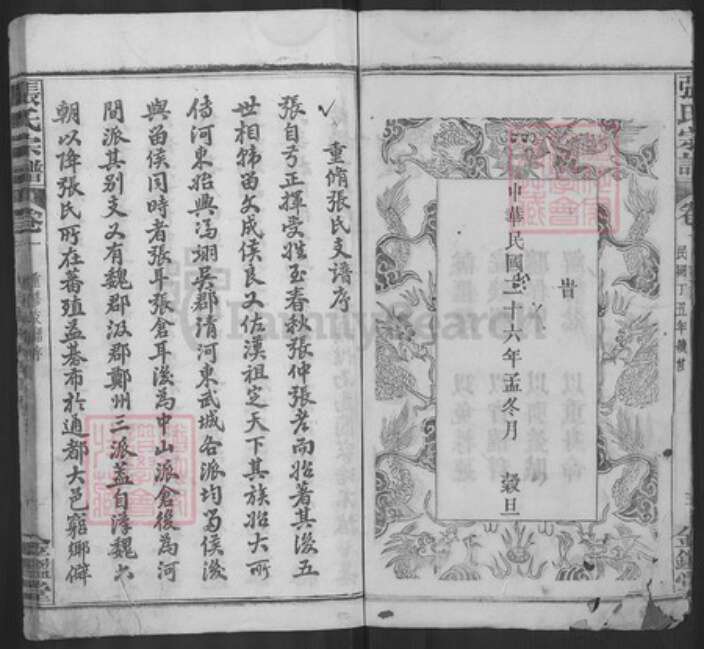 張氏宗譜
民國丁丑年
中華民國二十六年孟冬月 穀旦
重脩張氏支譜序
張自弓正揮受姓至春秋張仲張老而始著其後五
世相韓留文成侯良又佐漢祖定天下其族始大所
傳河東始興馮翊吳郡清河東武城各派均留侯後
與留侯同時者張耳張倉耳後為中山派倉後為河
間派其別支又有魏郡汲郡鄭州三派蓋自漢魏六
朝以降張氏所在蕃殖益棊布於通都大邑窮鄉僻
張氏宗譜
卷一
FamilySearch